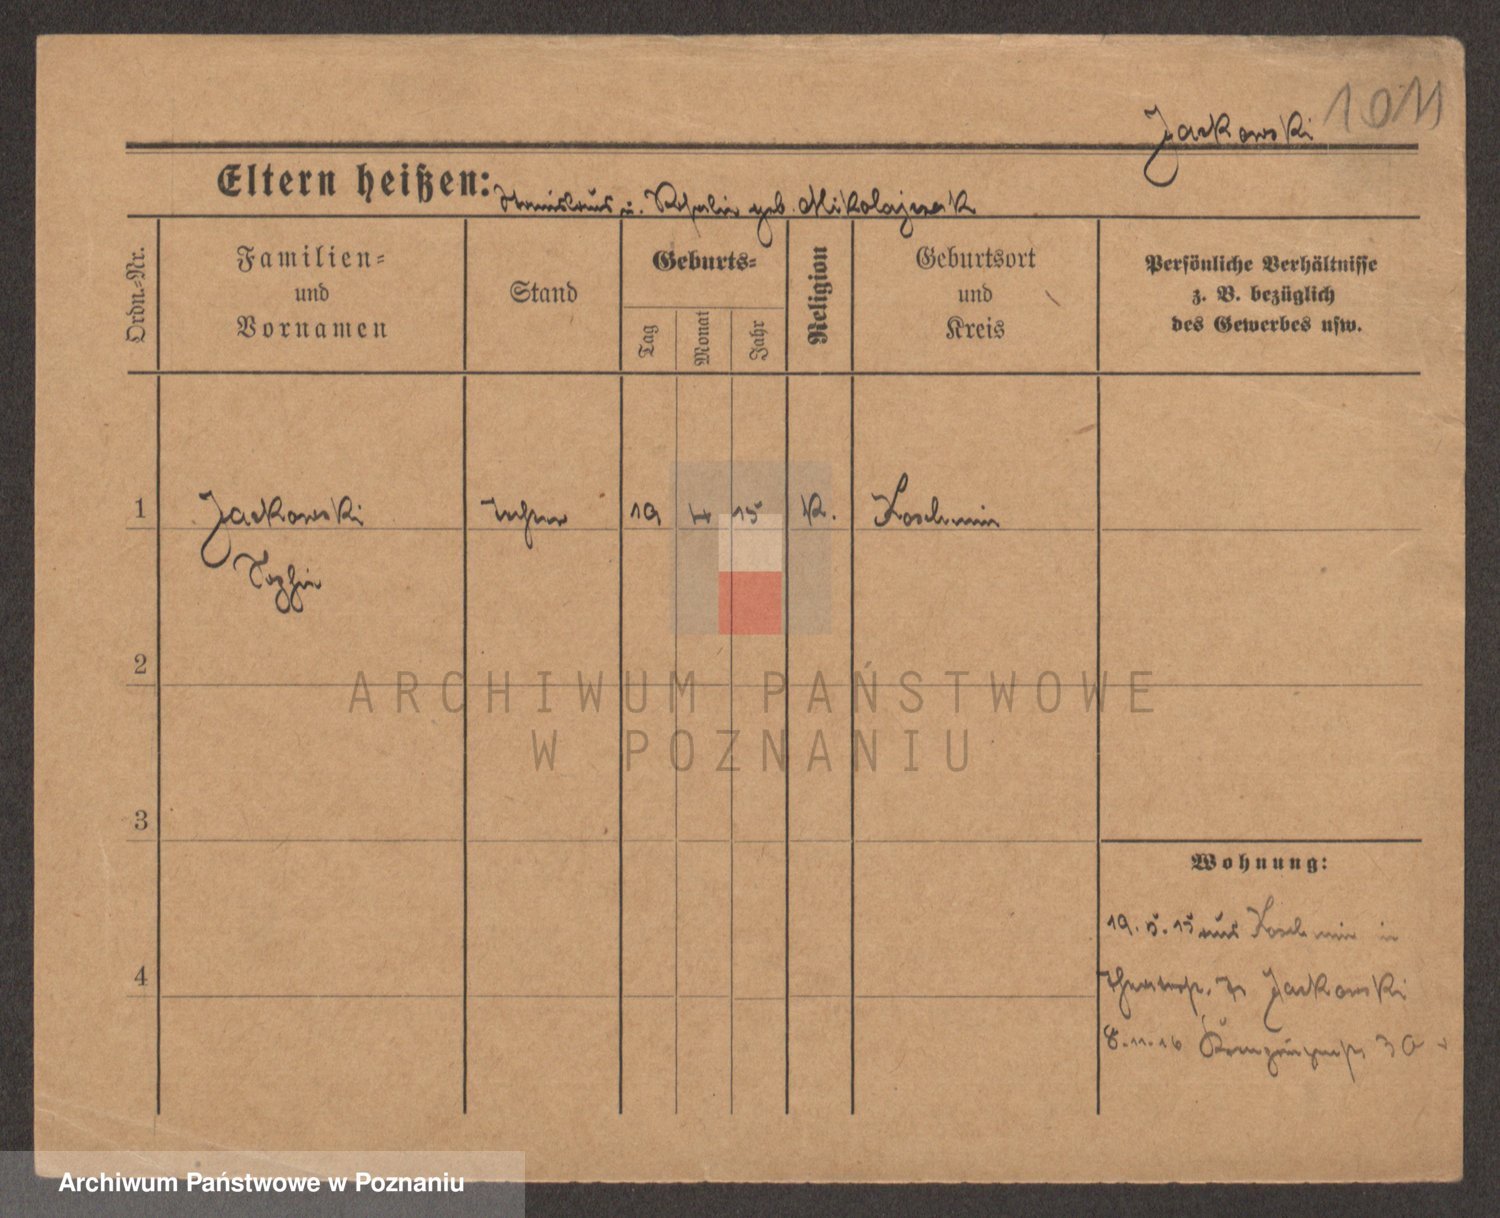 1011
Jackowski
Eltern heißen: Stanislaus u. geb. Mikolajczak
Ordn.-Nr.
Familien-
und
Vornamen
Stand
Geburts-
Tag
Monat
Jahr
Religion
Geburtsort
und
Kreis
Persönliche Verhältnisse
z. B. bezüglich
des Gewerbes usw.
1 Jackowski Tochter 19 4 15 K. Koschmin
Sophie
2
3
4
Wohnung:
19.5.15 aus Koschmin in
Jackowski
8.11.16 30
ARCHIWUM PAŃSTWOWE
W POZNANIU
Archiwum Państwowe w Poznaniu